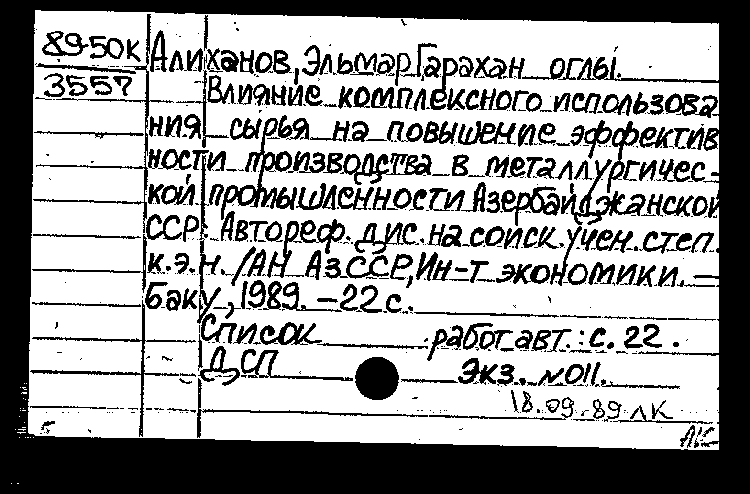 89-50К
3557
Алиханов, Эльмар Гарахан оглы.
Влияние комплексного использова
ния сырья на повышение эффектив
ности производства в металлургичес-
кой промышленности Азербайджанской
ССР: Автореф. дис. на соиск. учен. степ.
к.э.н. /АН АзССР, Ин-т экономики. —
Баку, 1989. – 22 с.
Список работ авт.: с. 22.
ДСП Экз. №011.
18.09.89 ЛК